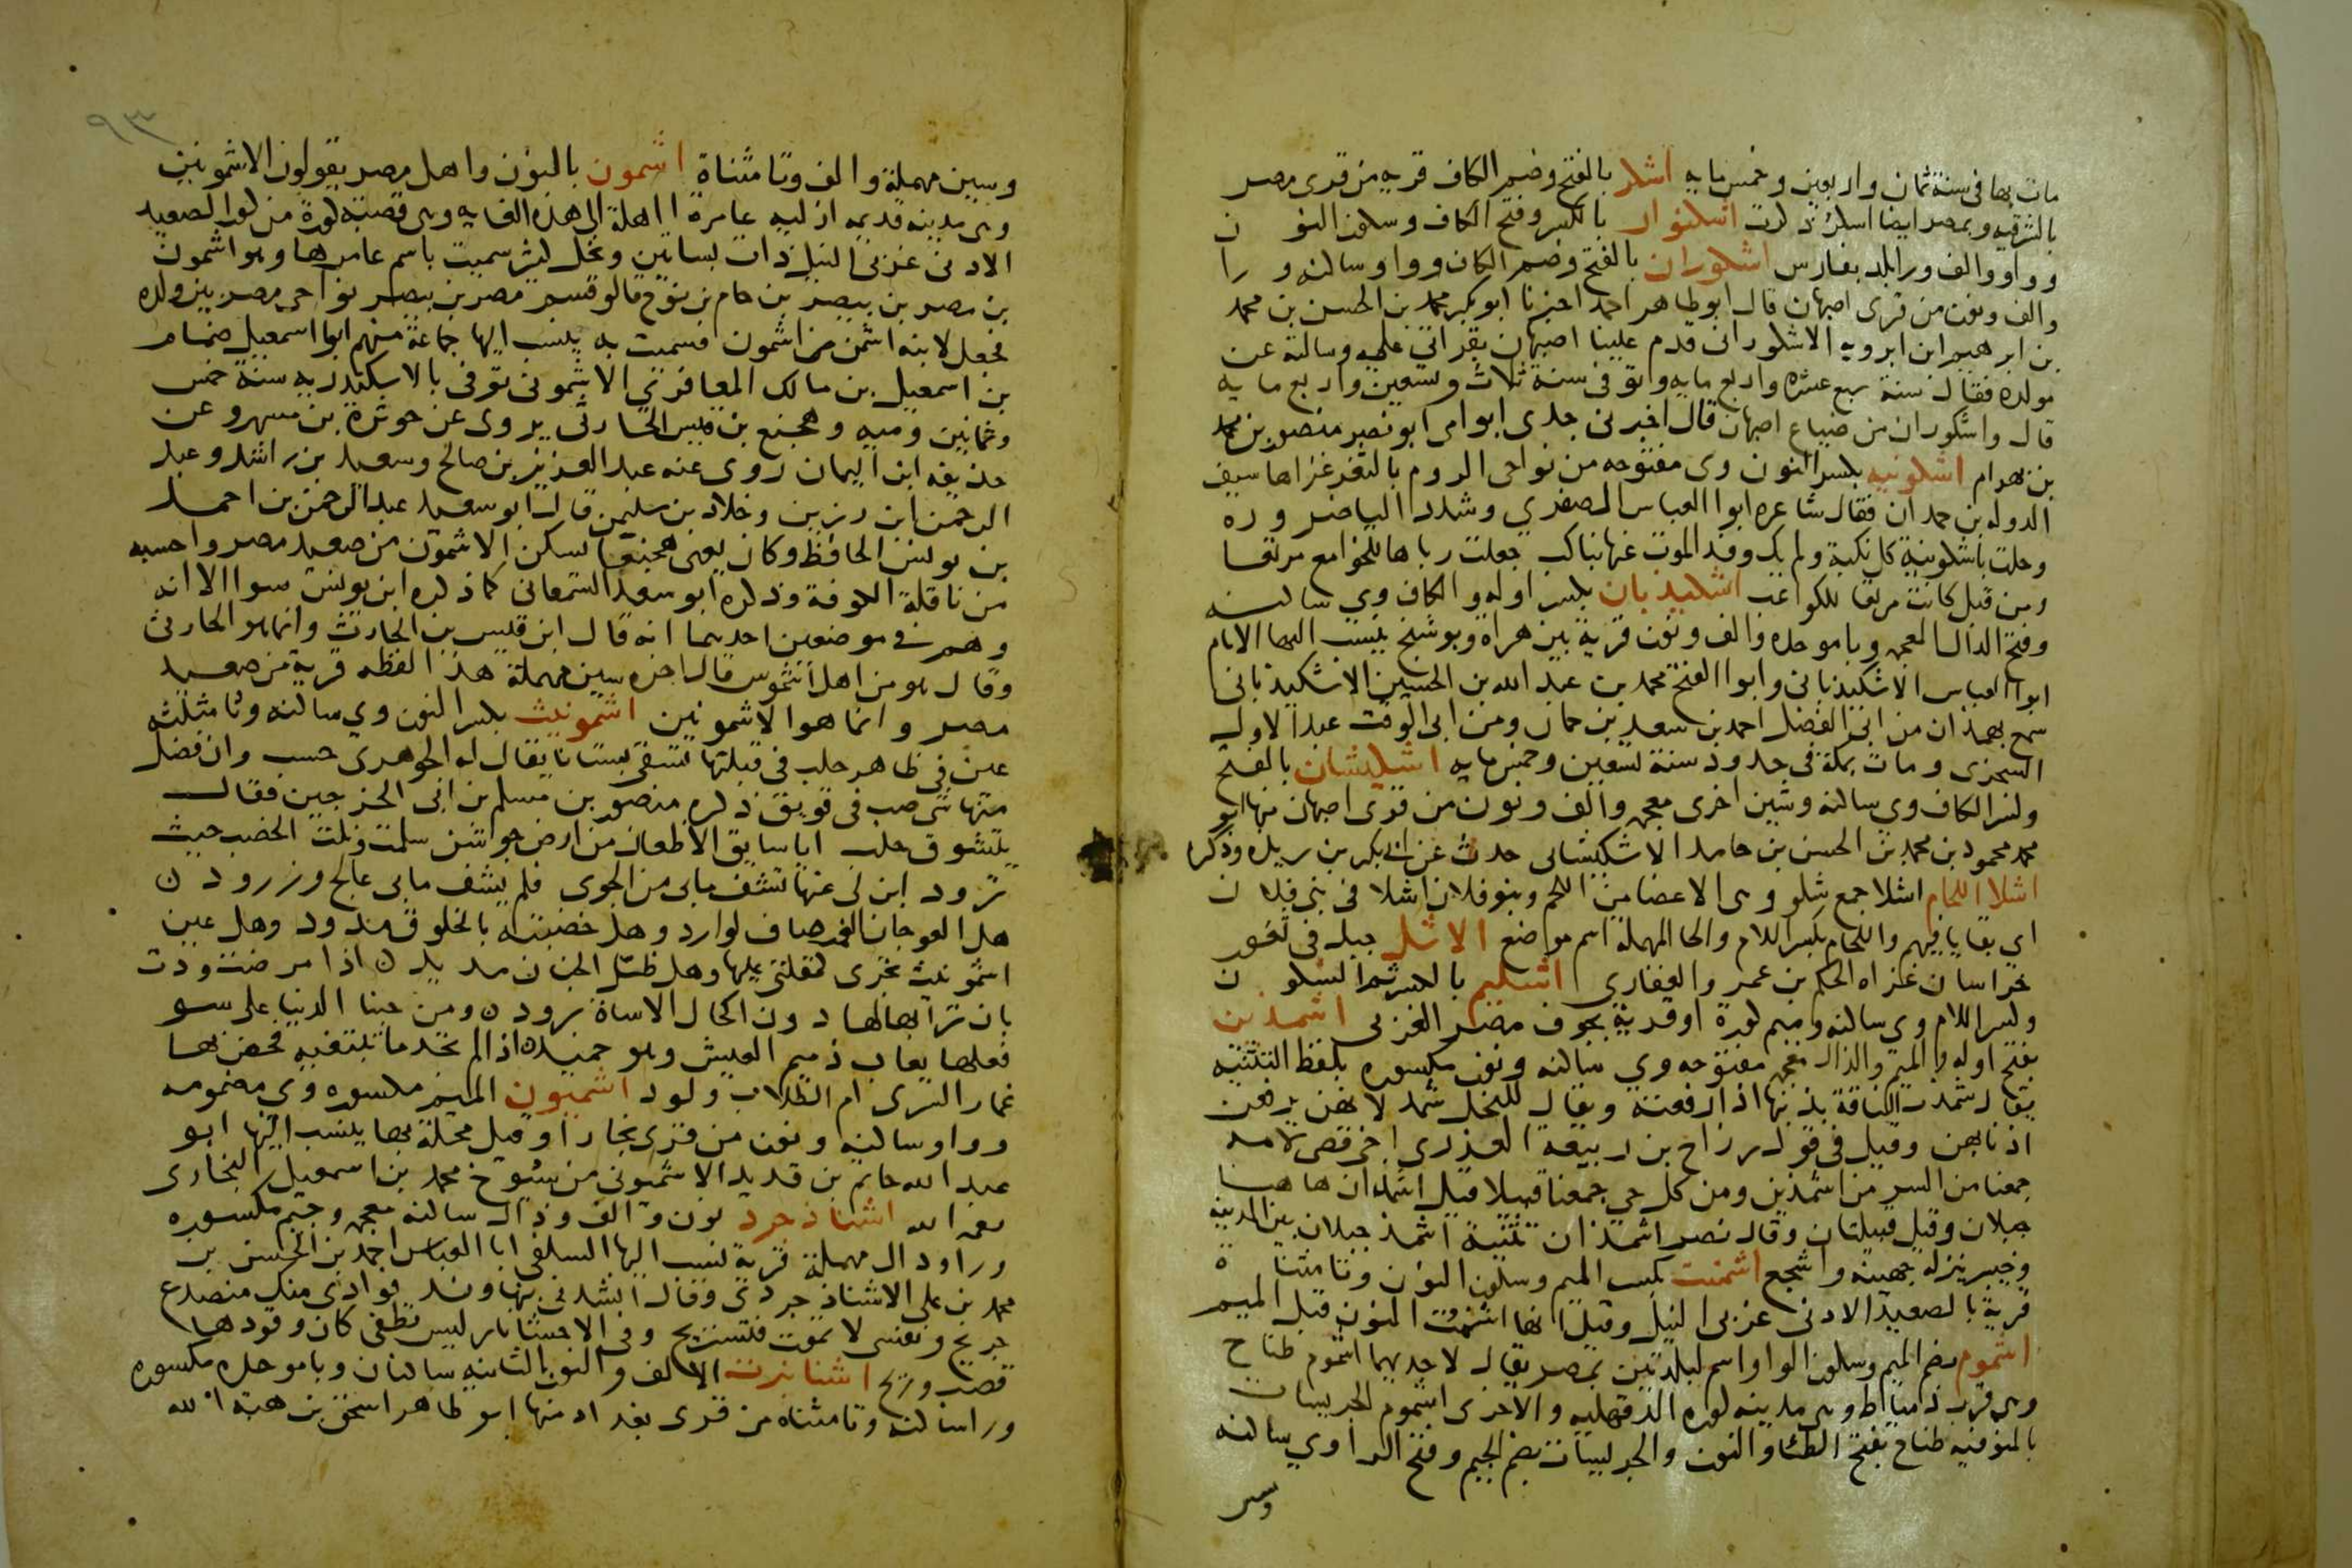 مات بها في سنة ثمان واربعين وخمس مايه اشكر بالفتح وضم الكاف قريه من قرى مصر
بالشرقيه وبمصر ايضا اسكر ذكرت اشكنوار بالكسر وفتح الكاف وسكون النون
وواو والف ورا بلد بفارس اشكوران بالفتح وضم الكاف وواو ساكنه ورا
والف ونون من قرى اصبهان قال ابو طاهر احمد اخبرنا ابو بكر محمد بن الحسن بن محمد
بن ابرهيم ابن ابرويه الاشكوراني قدم علينا اصبهان بقراتي عليه وسالته عن
مولده فقال سنة سبع عشره واربع مايه وتوفى سنة ثلاث وتسعين واربع مايه
قال واشكوران من ضياع اصبهان قال اخبرني جدى ابو امى ابو نصر منصور بن محمد
بن بهرام اشكونيه بكسر النون وى مفتوحه من نواحى الروم بالثغر غزاها سيف
الدوله بن حمدان فقال شاعره ابوا العباس الصفرى وشدد اليا ضروره
وحلت باشكونية كل نكبة ولم يك وفد الموت عنها بناكب جعلت رباها للخوامع مرتعا
ومن قبل كانت مرتعا للكواعب اشكيذبان بكسر اوله والكاف وى ساكنه
وفتح الذال المعجمه وبا موحده والف ونون قرية بين هراة وبوشنج ينسب اليها الامام
ابوا العباس الاشكيذبانى وابوا الفتح محمد بن عبد الله بن الحسين الاشكيذبانى
سمع بهمذان من ابى الفضل احمد بن سعد بن حمان ومن ابى الوقت عبد الاول
السجزى ومات بمكة فى حدود سنة تسعين وخمس مايه اشكيشان بالفتح
وكسر الكاف وى ساكنه وشين اخرى معجمه والف ونون من قرى اصبهان منها ابو
محمد محمود بن محمد بن الحسن بن حامد الاشكيشانى حدث عن ابى بكر بن ريذه وذكرا
اشلا اللحام اشلا جمع شلو وهى الاعضا من اللحم وبنو فلان اشلا فى بنى فلان
اى بقايا فيهم واللحام بكسر اللام والحا المهملة اسم مواضع الاشل جبل فى ثغور
خراسان غزاه الحكم بن عمرو الغفارى اشليم بالكسر ثم السكون
وكسر اللام وى ساكنه وميم كورة او قرية بحوف مصر الغربى اشمذين
بفتح اوله والميم والذال معجمه مفتوحه وى ساكنه ونون مكسوره بلفظ التثنيه
يقال شمذت الناقة بذنبها اذا رفعته ويقال للنخل شمذ لانهن يرفعن
اذنابهن وقيل فى قول رزاح بن ربيعة العذرى اخى قصى لامه
جمعنا من السر من اشمذين ومن كل حى جمعنا قبيلا قيل اشمذان هاهنا
جبلان وقيل قبيلتان وقال نصر اشمذان تثنية اشمذ جبلان بين المدينه
وخيبر ينزله جهينه واشجع اشمنت بكسر الميم وسكون النون وتا مثناة
قرية بالصعيد الادنى غربى النيل وقيل انها اشنمت النون قبل الميم
اشموم بضم الميم وسكون الواو اسم لبلدتين بمصر يقال لاحديهما اشموم طناح
وهى قرب دمياط وهى مدينه كوره الدقهليه والاخرى اشموم الجريسات
بالمنوفيه طناح بفتح الطا والنون والجريسات بضم الجيم وفتح الرا وى ساكنه
وسين
٩٣
وسين مهملة والف وتا مثناة اشمون بالنون واهل مصر يقولون الاشمونين
وهى مدينه قديمه ازليه عامرة اهلة الى هذه الغايه وهى قصبة كورة من كور الصعيد
الادنى غربى النيل ذات بساتين ونخل كثير سميت باسم عامرها وهو اشمون
بن مصر بن بيصر بن حام بن نوح قالو قسم مصر بن بيصر نواحى مصر بين ولده
فجعل لابنه اشمن من اشمون فسميت به ينسب اليها جماعة منهم ابوا اسمعيل ضمام
بن اسمعيل بن مالك المعافرى الاشمونى توفى بالاسكندريه سنة خمس
وثمانين وميه وهجنع بن قيس الحارثى يروى عن حوثرة بن مسهر وعن
حذيفه ابن اليمان روى عنه عبد العزيز بن صالح وسعيد بن راشد وعبد
الرحمن ابن رزين وخلاد بن سليمن قال ابو سعيد عبد الرحمن بن احمد
بن يونس الحافظ وكان يعنى هجنعا يسكن الاشمون من صعيد مصر واحسبه
من ناقلة الكوفة وذكره ابو سعد السمعانى كما ذكره ابن يونس سوا الا انه
وهم فى موضعين احديهما انه قال ابن قيس بن الحارث وانما هو الحارثى
وقال هو من اهل اشموس قال اخره سين مهملة هذا لفظه قرية من صعيد
مصر وانما هو الاشمونين اشمونيث بكسر النون وى ساكنه وثا مثلثه
عين فى ظاهر حلب فى قبلتها تسقى بستانا يقال له الجوهرى حسب وان فضل
منها شى صب فى قويق ذكره منصور بن مسلم بن ابى الخرجين فقال
يتشوق حلب ايا سايق الاظعان من ارض جواشن سلمت ونلت الخصب حيث
ترود ابن لى عنها تشف مابى من الجوى فلم يشف مابى عالج وزرود
هل العوجان الغمر صاف لوارد وهل خضبته بالخلوق مدود وهل عين
اشمونيث تجرى كمقلتى عليها وهل ظل الجنان مديد اذا مرضت ودت
بان ترابها لها دون اكحال الاساة برود ومن حبنا الدنيا على سو
فعلها يعاب ذميم العيش وهو حميد اذا لم تجد ما تبتغيه فخض بها
غمار السرى ام الطلاب ولود اشميون الميم مكسوره وى مضمومه
وواو ساكنه ونون من قرى بخارا وقيل محلة بها ينسب اليها ابو
عبد الله حاتم بن قديد الاشميونى من شيوخ محمد بن اسمعيل البخارى
رحمه الله اشناذجرد نون والف وذال ساكنه معجمه وجيم مكسوره
ورا ودال مهملة قرية نسب اليها السلفى ابا العباس احمد بن الحسن بن
محمد بن على الاشناذجردى وقال انشدنى بنهاوند فوادى منك منصدع
جريح ونفسى لا تموت فتستريح وفى الاحشا نار ليس تطفى كان وقودها
قصب وريح اشنانبرت الالف والنون الثانيه ساكنان وبا موحده مكسوره
ورا ساكنه وتا مثناه من قرى بغداد منها ابو طاهر اسحق بن هبة الله